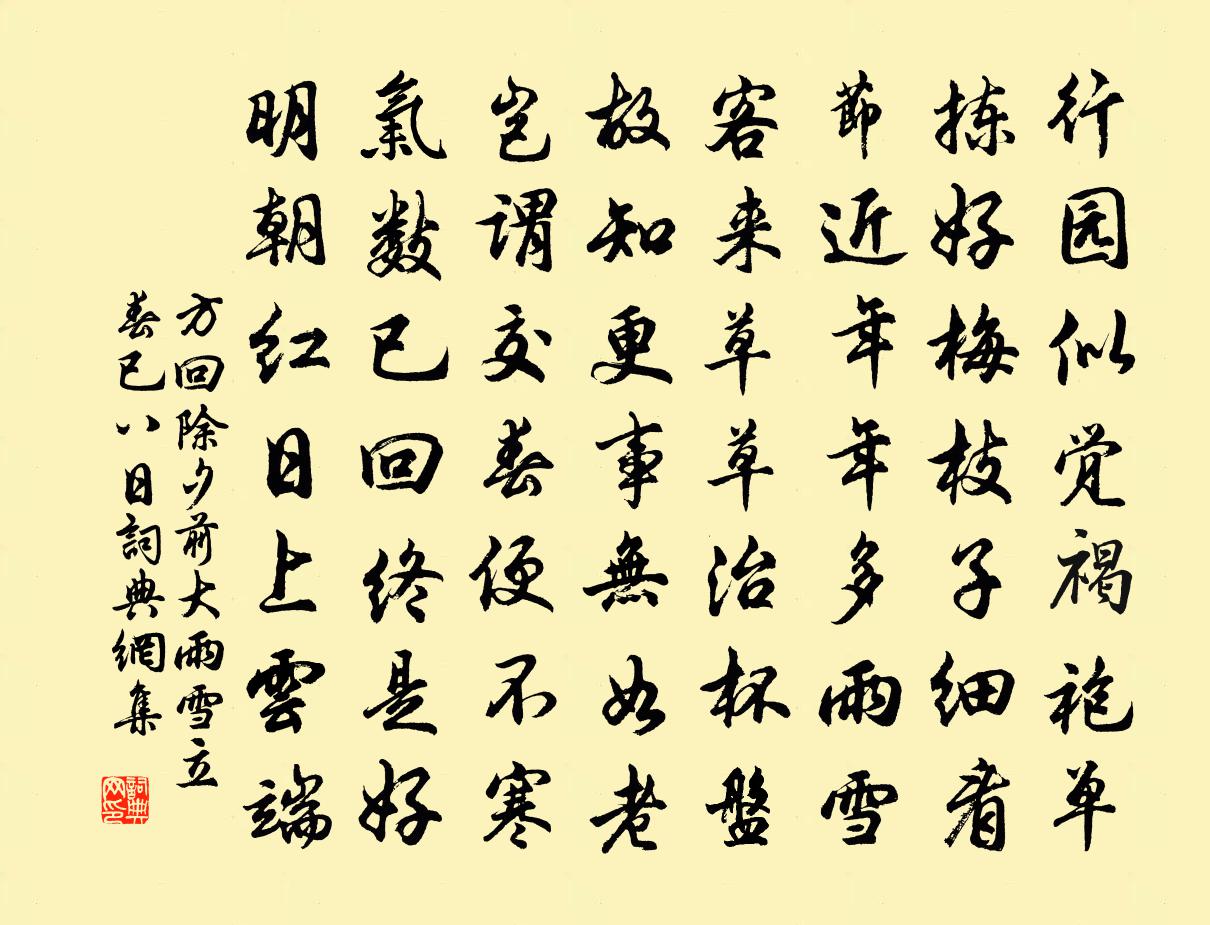 行园似觉褐袍单
拣好梅枝子细看
節近年年多雨雪
客来草草治杯盤
故知更事無如老
岂谓交春便不寒
氣數已回终是好
明朝红日上雲端
方回除夕前大雨雪立
春已八日詞典網集
詞典网印